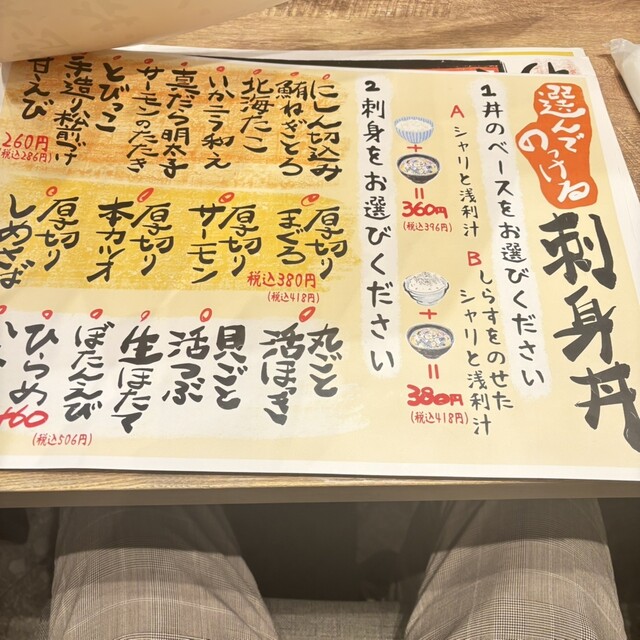 選んで
のっける
刺身丼
1 丼のベースをお選びください
A シャリと浅利汁
360円
(税込396円)
B しらすをのせた
シャリと浅利汁
380円
(税込418円)
2 刺身をお選びください
にしん切込み
鮪ねぎとろ
北海たこ
いかこうじ和え
真だら明太子
サーモンのたたき
とびっこ
手造り松前づけ
甘えび
260円
(税込286円)
厚切り
まぐろ
厚切り
サーモン
厚切り
本カツオ
厚切り
しめさば
税込380円
(税込418円)
丸ごと
活ほっき
貝ごと
活つぶ
生ほたて
ぼたんえび
ひらめ
460
(税込506円)